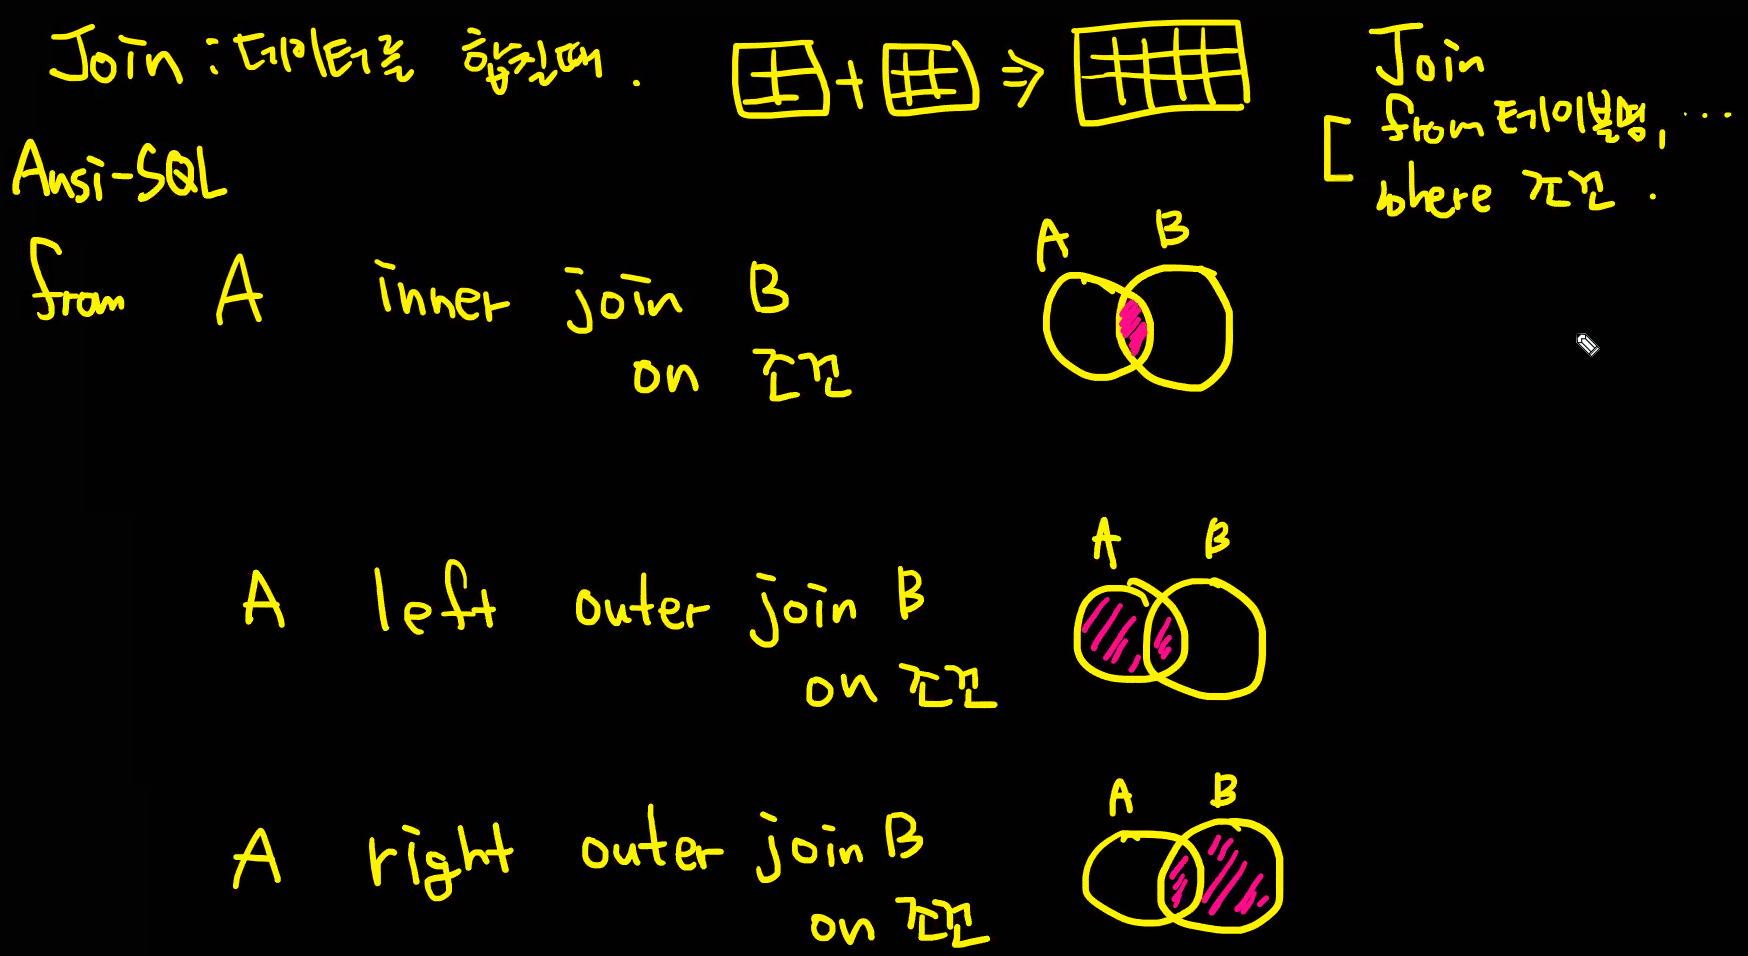 Join : 데이터를 합칠때 .
Join
from 테이블명, ...
where 조건 .
Ansi-SQL
from A inner join B
on 조건
A B
A left outer join B
on 조건
A B
A right outer join B
on 조건
A B